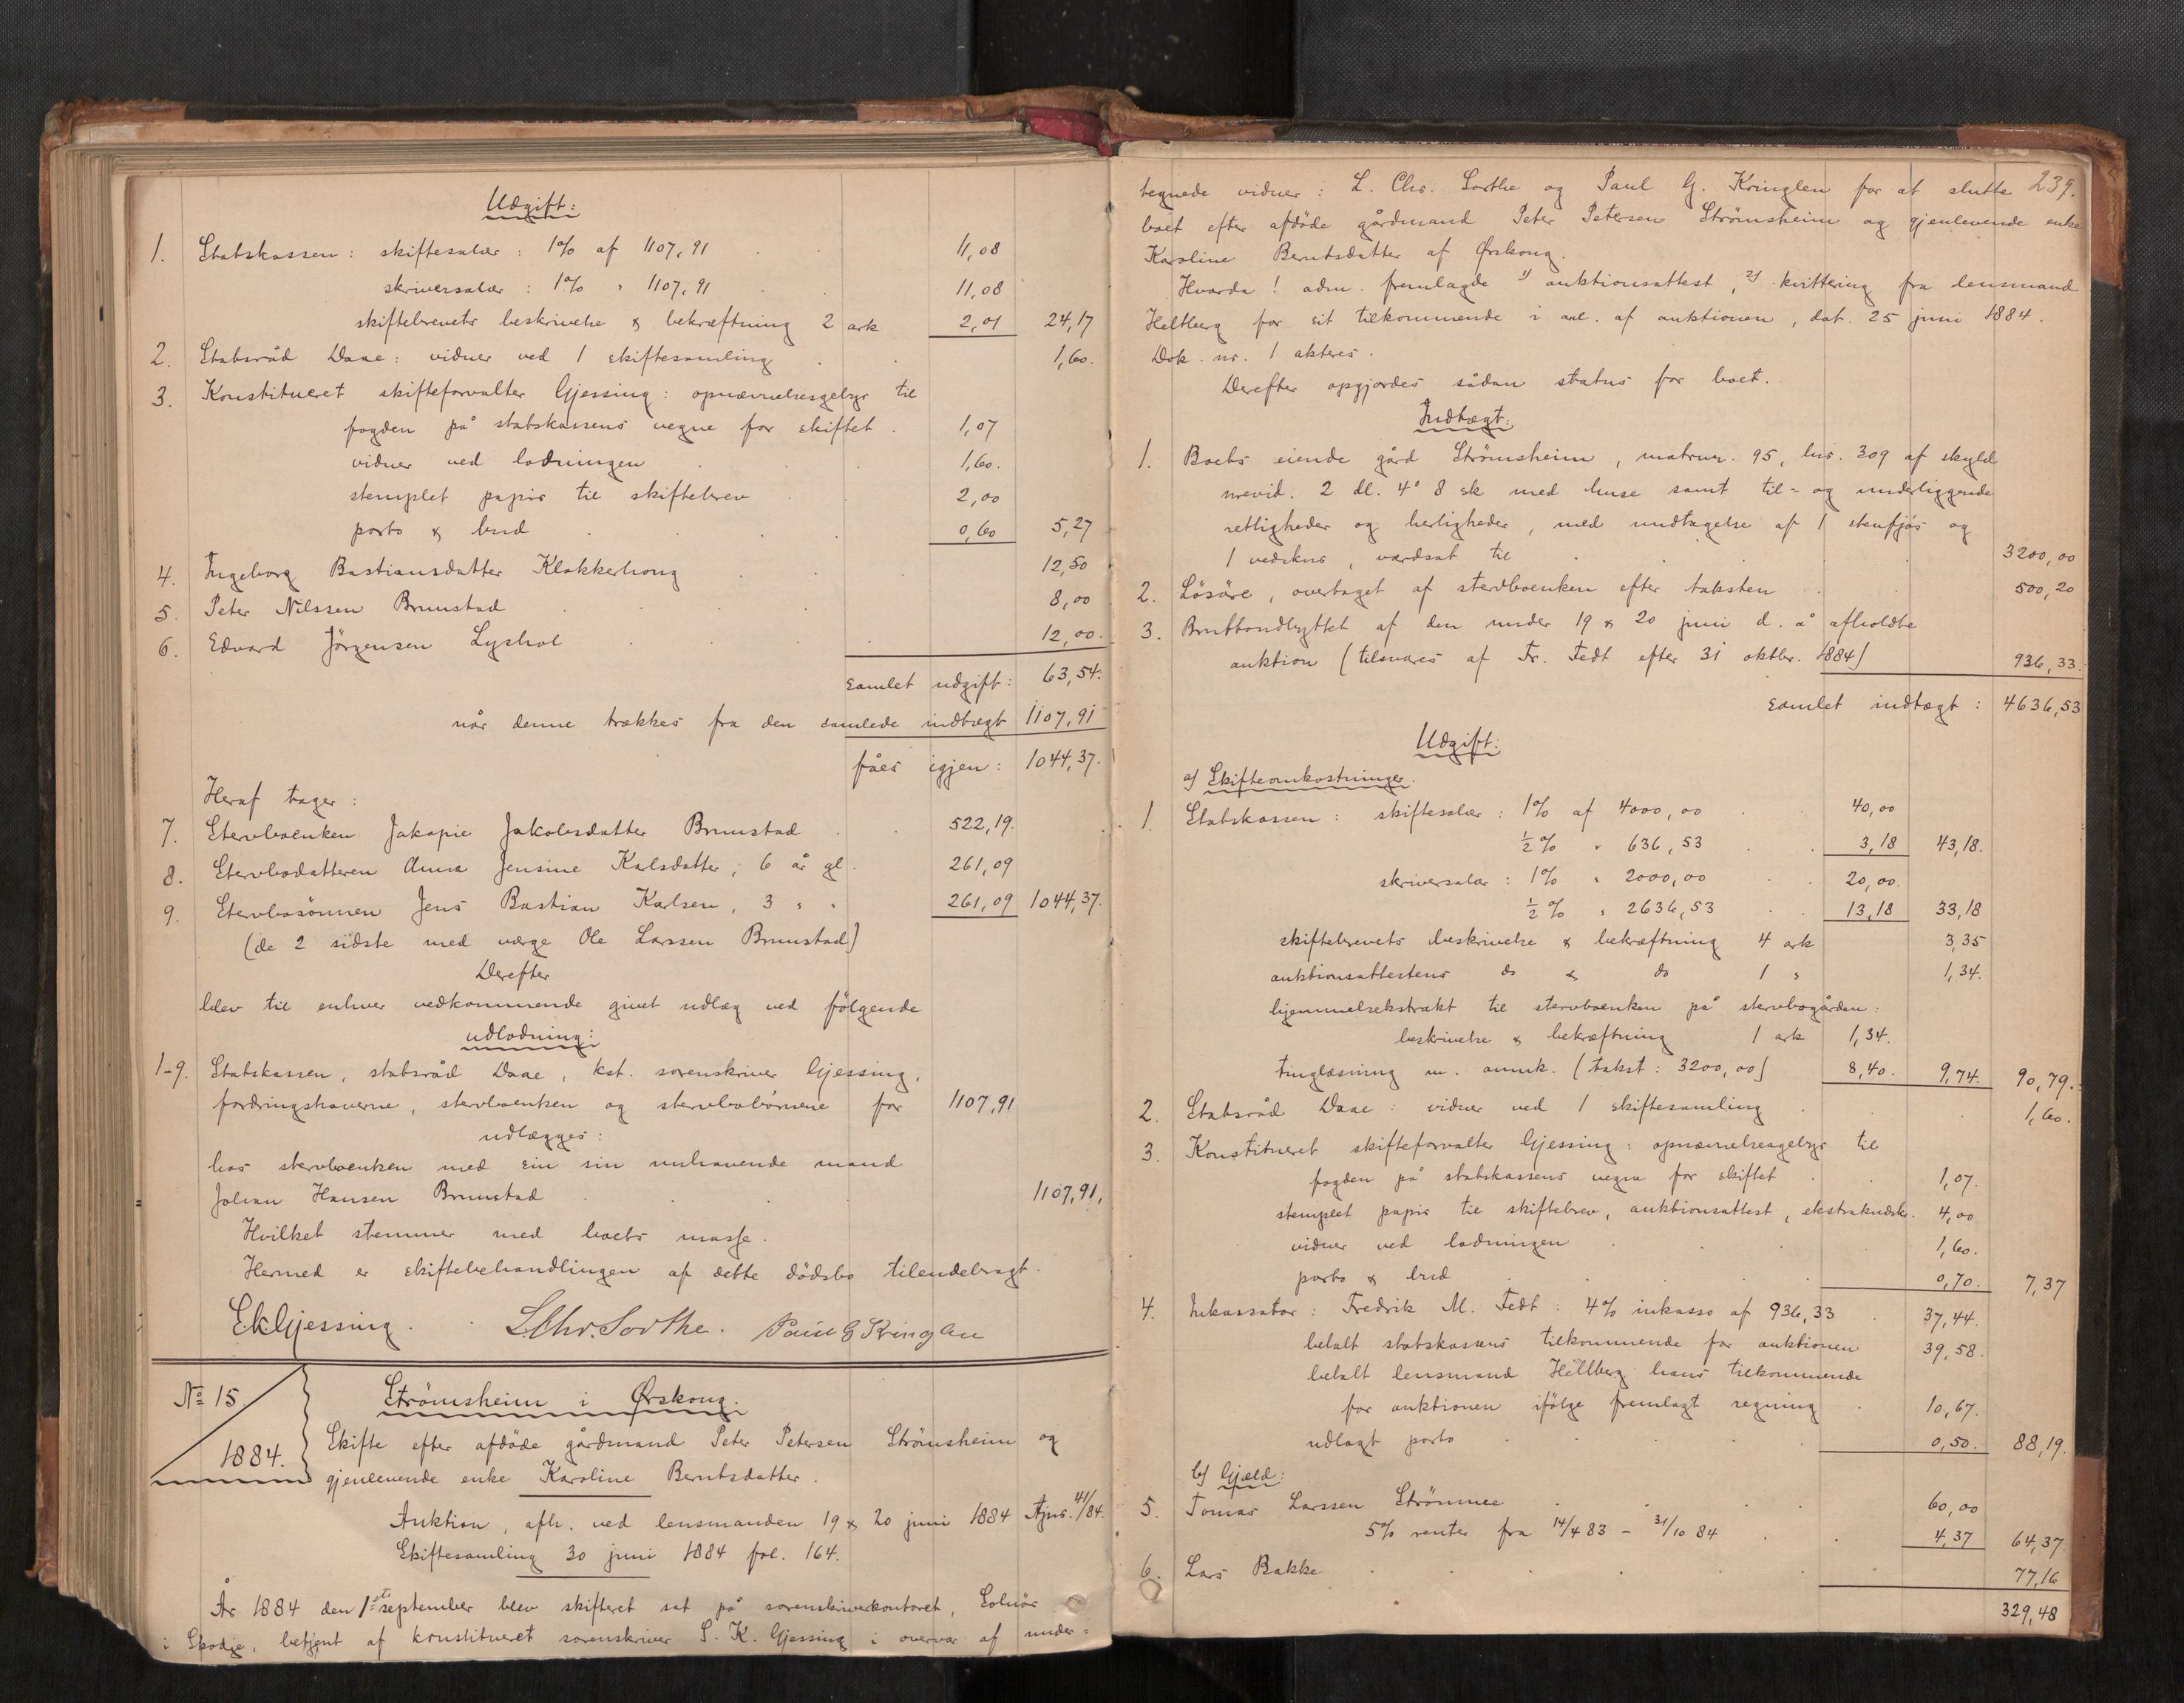 Udgift:
1. Statskassen: skiftesalær: 1% af 1107,91 . . 11,08
skriversalær: 1% " 1107,91 . . 11,08
skiftebrevets beskrivelse & bekræftning 2 ark 2,01 24,17
2. Statsråd Daae: vidner ved 1 skiftesamling . . 1,60.
3. Konstitueret skifteforvalter Gjessing: opnævnelsesgebyr til
fogden på statskassens vegne for skiftet . 1,07
vidner ved lodningen . . 1,60.
stemplet papir til skiftebrev . . 2,00
porto & bud . . . 0,60 5,27
4. Ingeborg Bastiansdatter Klokkerhoug . . 12,50
5. Peter Nilssen Brunstad . . . 8,00
6. Edvard Jörgensen Lyshol . . . 12,00.
samlet udgift: 63,54.
når denne trækkes fra den samlede indtægt 1107,91
fåes igjen: 1044,37.
Heraf tager:
7. Stervboenken Jakopie Jakobsdatter Brunstad . . 522,19.
8. Stervbodatteren Anna Jensine Karlsdatter, 6 år gl. 261,09
9. Stervbosönnen Jens Bastian Karlsen, 3 " " 261,09 1044,37.
(de 2 sidste med værge Ole Larssen Brunstad)
Derefter
blev til enhver vedkommende givet udlæg ved fölgende
udlodning:
1-9. Statskassen, statsråd Daae, kst. sorenskriver Gjessing,
fordringshaverne, stervboenken og stervbobörnene for 1107,91
udlægges:
hos stervboenken med sin nuhavende mand
Johan Hansen Brunstad . . . 1107,91,
Hvilket stemmer med boets masse.
Hermed er skiftebehandlingen af dette dödsbo tilendebragt.
SKGjessing. L. Chr. Sorthe. Paul G Kringlen
No 15. Strömsheim i Ørskoug.
1884. Skifte efter afdöde gårdmand Peter Petersen Strömsheim og
gjenlevende enke Karoline Berntsdatter.
Auktion, afh. ved lensmanden 19 & 20 juni 1884 Ajns. 41/84.
Skiftesamling 30 juni 1884 fol. 164.
År 1884 den 1ste september blev skifteret sat på sorenskriverkontoret, Solnör
i Skodje, betjent af konstitueret sorenskriver S. K. Gjessing i overvær af under=
239.
tegnede vidner: L. Chr. Sorthe og Paul G. Kringlen for at slutte
boet efter afdöde gårdmand Peter Petersen Strömsheim og gjenlevende enke
Karoline Berntsdatter af Ørskoug.
Hvorda! adm. fremlagde 1) auktionsattest, 2) kvittering fra lensmand
Heltberg for sit tilkommende i anl. af auktionen, dat. 25 juni 1884.
Dok. nr. 1 akteres.
Derefter opgjordes sådan status for boet.
Indtægt:
1. Boets eiende gård Strömsheim, matrnr. 95, lnr. 309 af skyld
urevid. 2 dl. 4 o 8 sk med huse samt til- og underliggende
rettigheder og herligheder, med undtagelse af 1 stenfjös og
1 vedskur, værdsat til . . . 3200,00
2. Lösöre, overtaget af stervboenken efter taksten . . 500,20
3. Bruttoudbyttet af den under 19 & 20 juni d. å afholdte
auktion (tilsvares af Fr. Fedt efter 31 oktbr. 1884) 936,33.
samlet indtægt: 4636,53
Udgift:
a) Skifteomkostninger.
1. Statskassen: skiftesalær: 1% af 4000,00 . . 40,00
½% " 636,53 . . 3,18 43,18.
skriversalær: 1% " 2000,00 . . 20,00.
½% " 2636,53 . . 13,18 33,18
skiftebrevets beskrivelse & bekræftning 4 ark 3,35
auktionsattestens do & do 1 " 1,34.
hjemmelsekstrakt til stervboenken på stervbogården:
beskrivelse & bekræftning 1 ark 1,34.
tinglæsning m. anmk. (takst: 3200,00) 8,40. 9,74. 90,79.
2. Statsråd Daae: vidner ved 1 skiftesamling . . 1,60.
3. Konstitueret skifteforvalter Gjessing: opnævnelsesgebyr til
fogden på statskassens vegne for skiftet . . 1,07.
stemplet papir til skiftebrev, auktionsattest, ekstraktudskr. 4,00
vidner ved lodningen . . . 1,60.
porto & bud . . . 0,70. 7,37
4. Inkassator: Fredrik M. Fedt: 4% inkasso af 936,33 . 37,44.
betalt statskassens tilkommende for auktionen 39,58.
betalt lensmand Heltberg hans tilkommende
for auktionen ifölge fremlagt regning . 10,67.
udlagt porto . . . 0,50. 88,19.
b) Gjæld:
5. Tomas Larssen Strömme . . . 60,00
5% renter fra 14/4 83 - 31/10 84 . . 4,37 64,37.
6. Lars Bakke . . . . 77,16
329,48